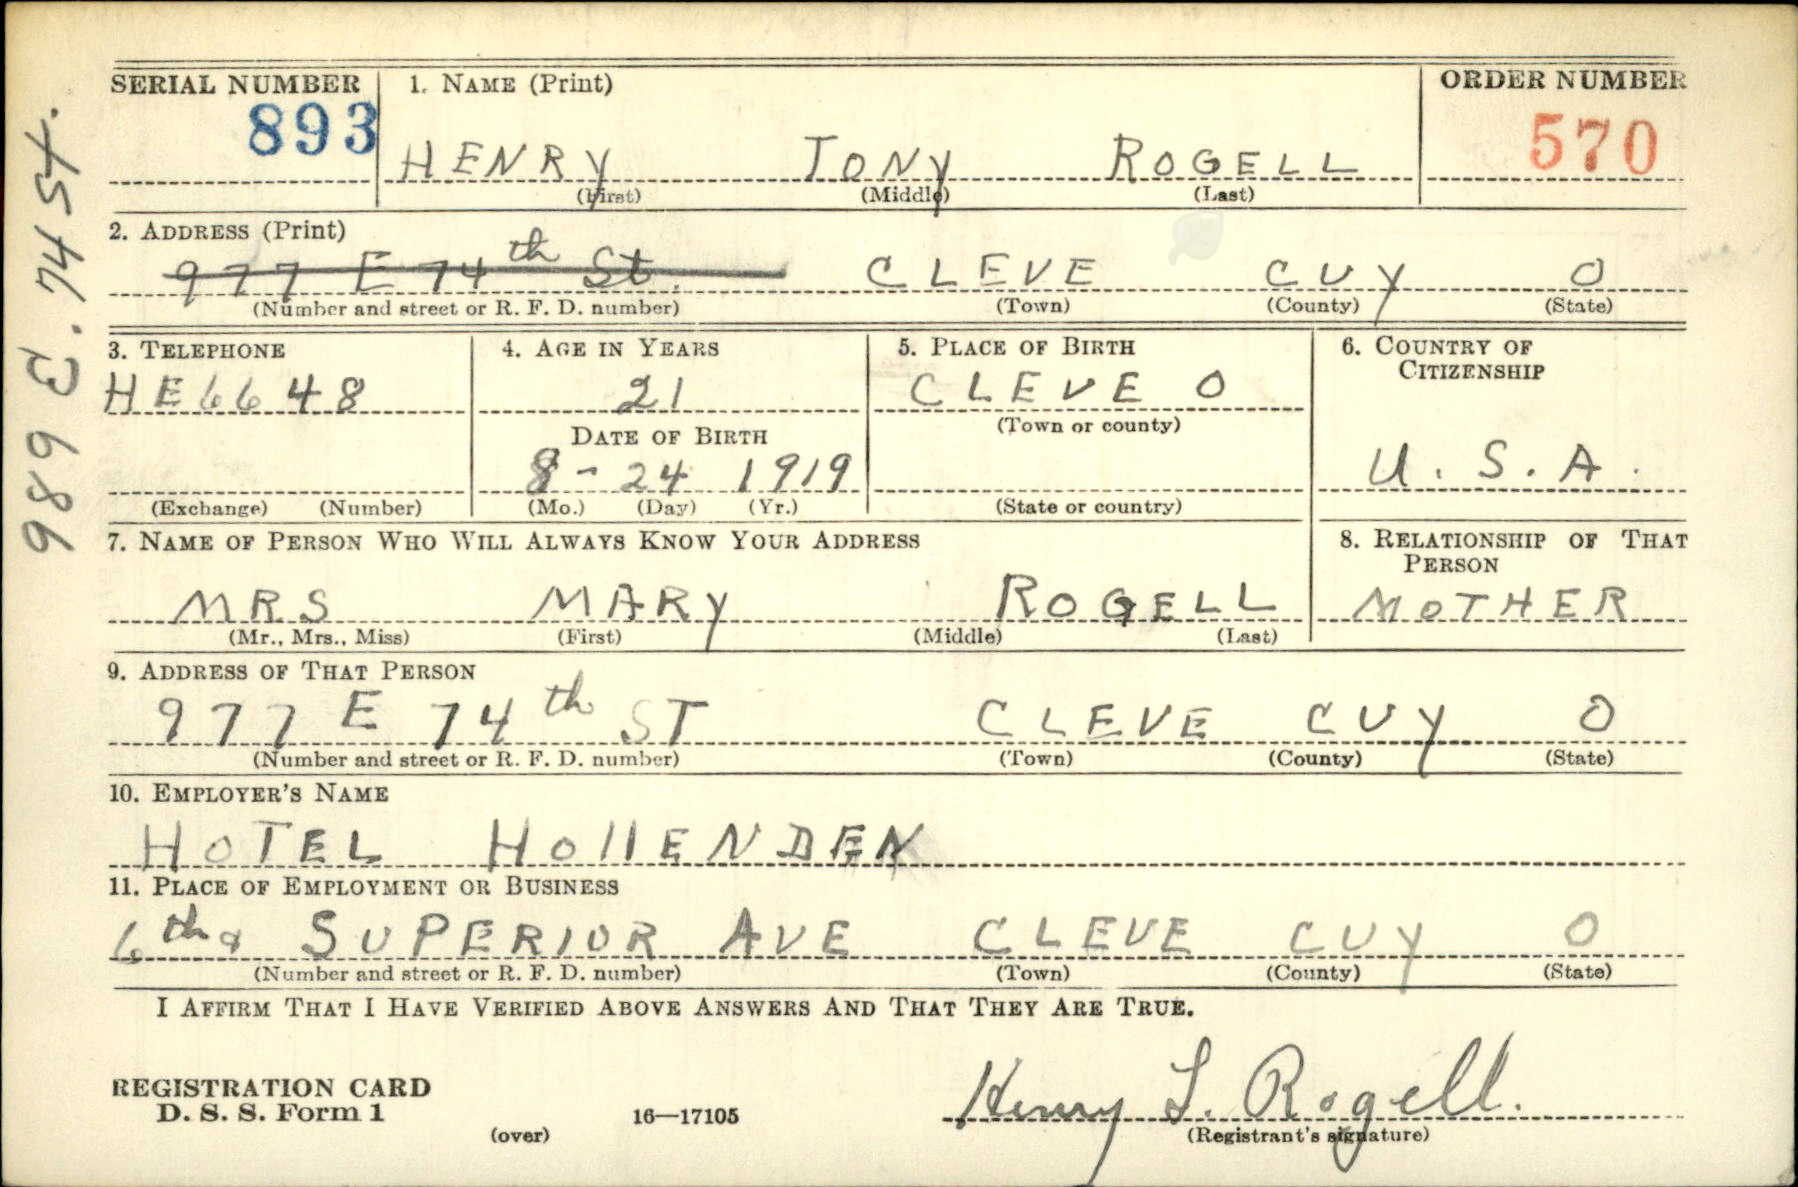 SERIAL NUMBER 1. NAME (Print) ORDER NUMBER
893 HENRY TONY ROGELL 570
(First) (Middle) (Last)
2. ADDRESS (Print)
977 E 74th St. CLEVE CUY O
(Number and street or R. F. D. number) (Town) (County) (State)
989 E. 74 St.
3. TELEPHONE 4. AGE IN YEARS 5. PLACE OF BIRTH 6. COUNTRY OF CITIZENSHIP
HE 6648 21 CLEVE O
(Town or county)
DATE OF BIRTH
8-24 1919 U.S.A.
(Exchange) (Number) (Mo.) (Day) (Yr.) (State or country)
7. NAME OF PERSON WHO WILL ALWAYS KNOW YOUR ADDRESS 8. RELATIONSHIP OF THAT PERSON
MRS MARY ROGELL MOTHER
(Mr., Mrs., Miss) (First) (Middle) (Last)
9. ADDRESS OF THAT PERSON
977 E 74th ST CLEVE CUY O
(Number and street or R. F. D. number) (Town) (County) (State)
10. EMPLOYER'S NAME
HOTEL HOllENDEN
11. PLACE OF EMPLOYMENT OR BUSINESS
6th & SUPERIOR AVE CLEVE CUY O
(Number and street or R. F. D. number) (Town) (County) (State)
I AFFIRM THAT I HAVE VERIFIED ABOVE ANSWERS AND THAT THEY ARE TRUE.
REGISTRATION CARD
D. S. S. Form 1
(over)
16—17105
Henry T. Rogell.
(Registrant's signature)